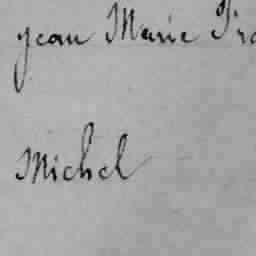 jean Marie
Michel